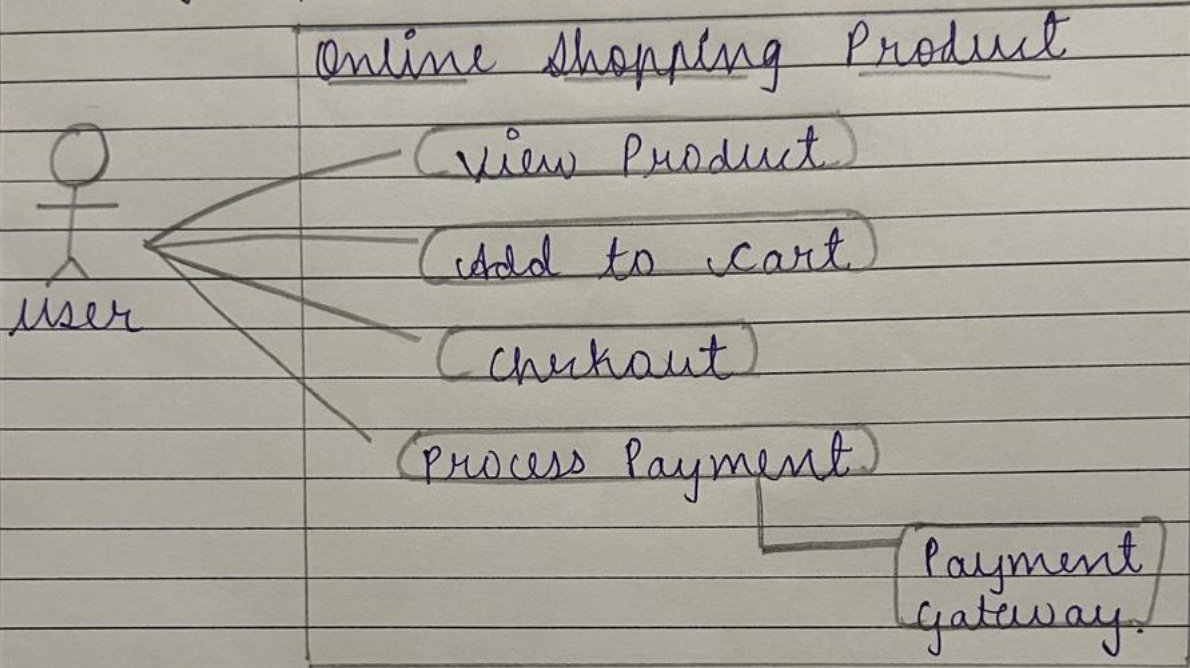 Online Shopping Product
View Product
Add to cart
User
Checkout
Process Payment
Payment
Gateway.